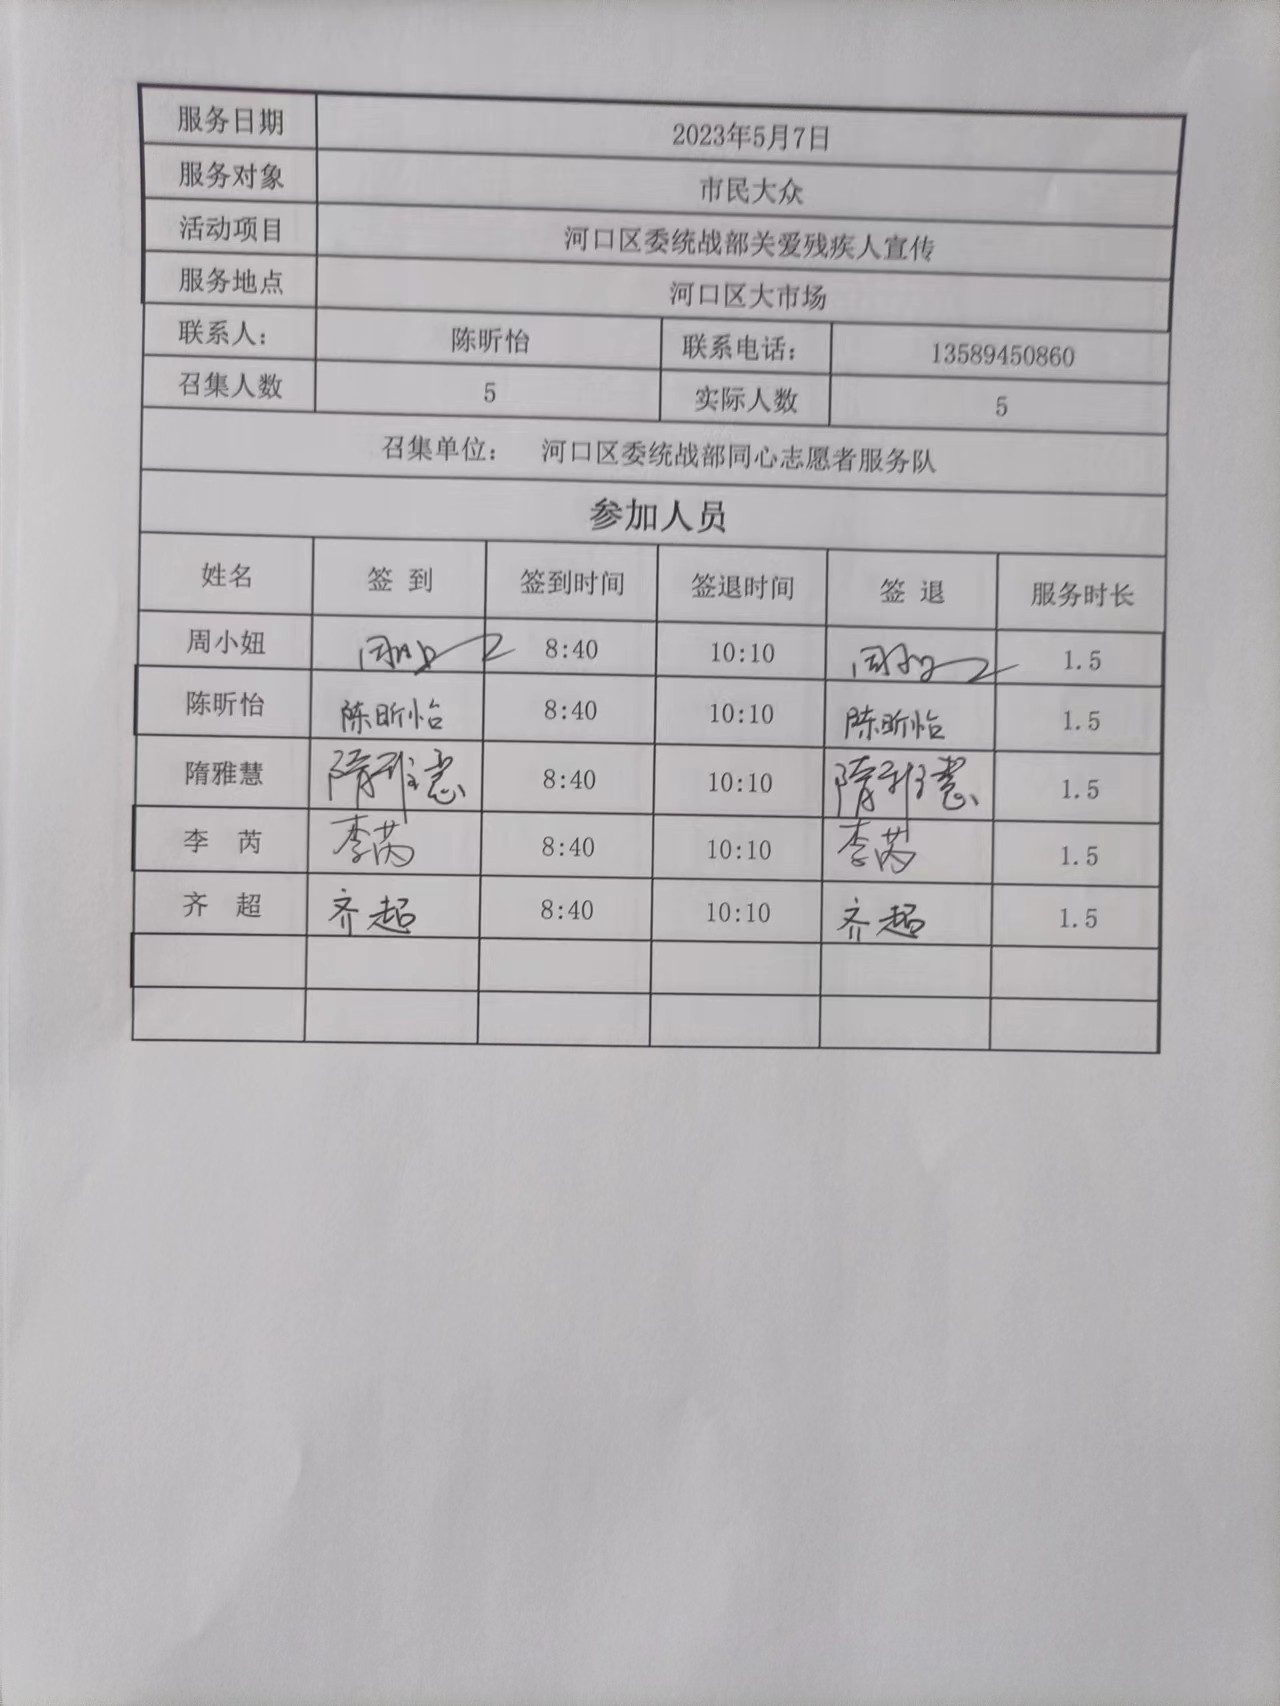 服务日期 2023年5月7日
服务对象 市民大众
活动项目 河口区委统战部关爱残疾人宣传
服务地点 河口区大市场
联系人： 陈昕怡 联系电话： 13589450860
召集人数 5 实际人数 5
召集单位： 河口区委统战部同心志愿者服务队
参加人员
姓名 签 到 签到时间 签退时间 签 退 服务时长
周小妞 8:40 10:10 1.5
陈昕怡 陈昕怡 8:40 10:10 陈昕怡 1.5
隋雅慧 隋雅慧 8:40 10:10 隋雅慧 1.5
李 芮 李芮 8:40 10:10 李芮 1.5
齐 超 齐超 8:40 10:10 齐超 1.5